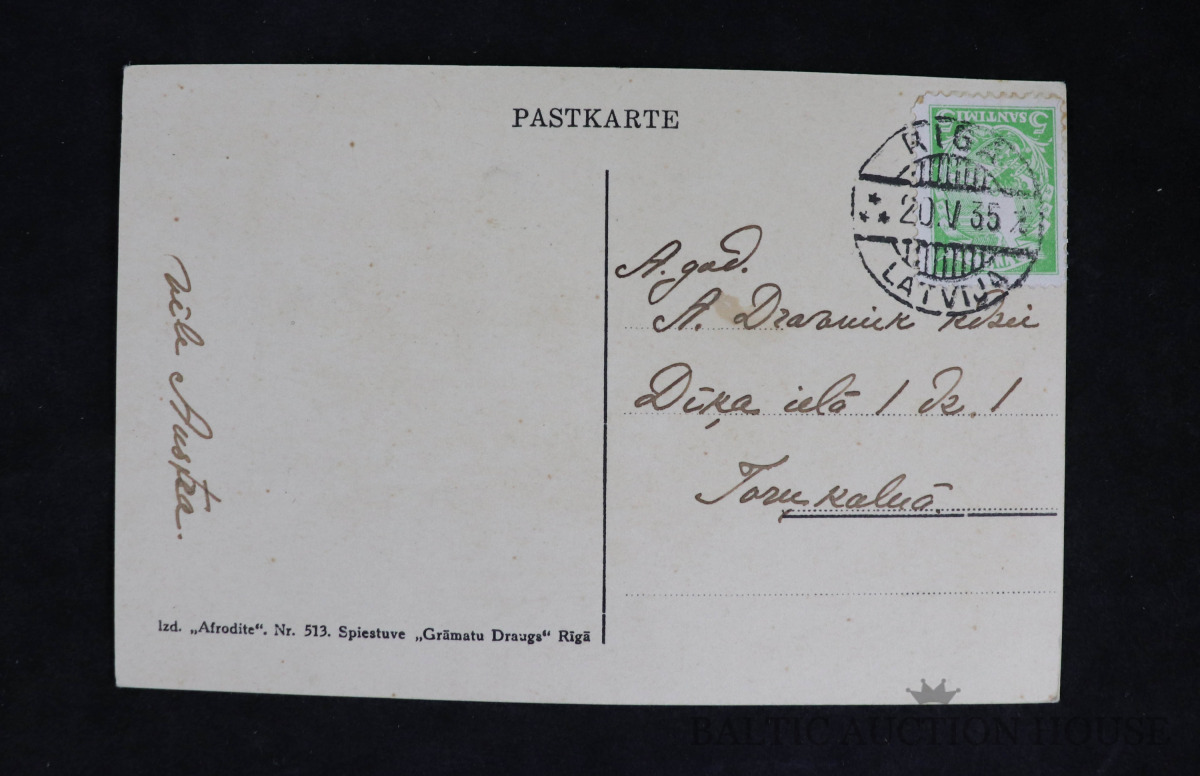 PASTKARTE
5 SANTIMI 5
RIGA
20.V 35
LATVIJA
A. god.
A. Dravniek kdzei
Dīķa ielā 1 dz. 1
Torņkalnā.
Austra.
Izd. „Afrodite“. Nr. 513. Spiestuve „Grāmatu Draugs“ Rīgā
BALTIC AUCTION HOUSE